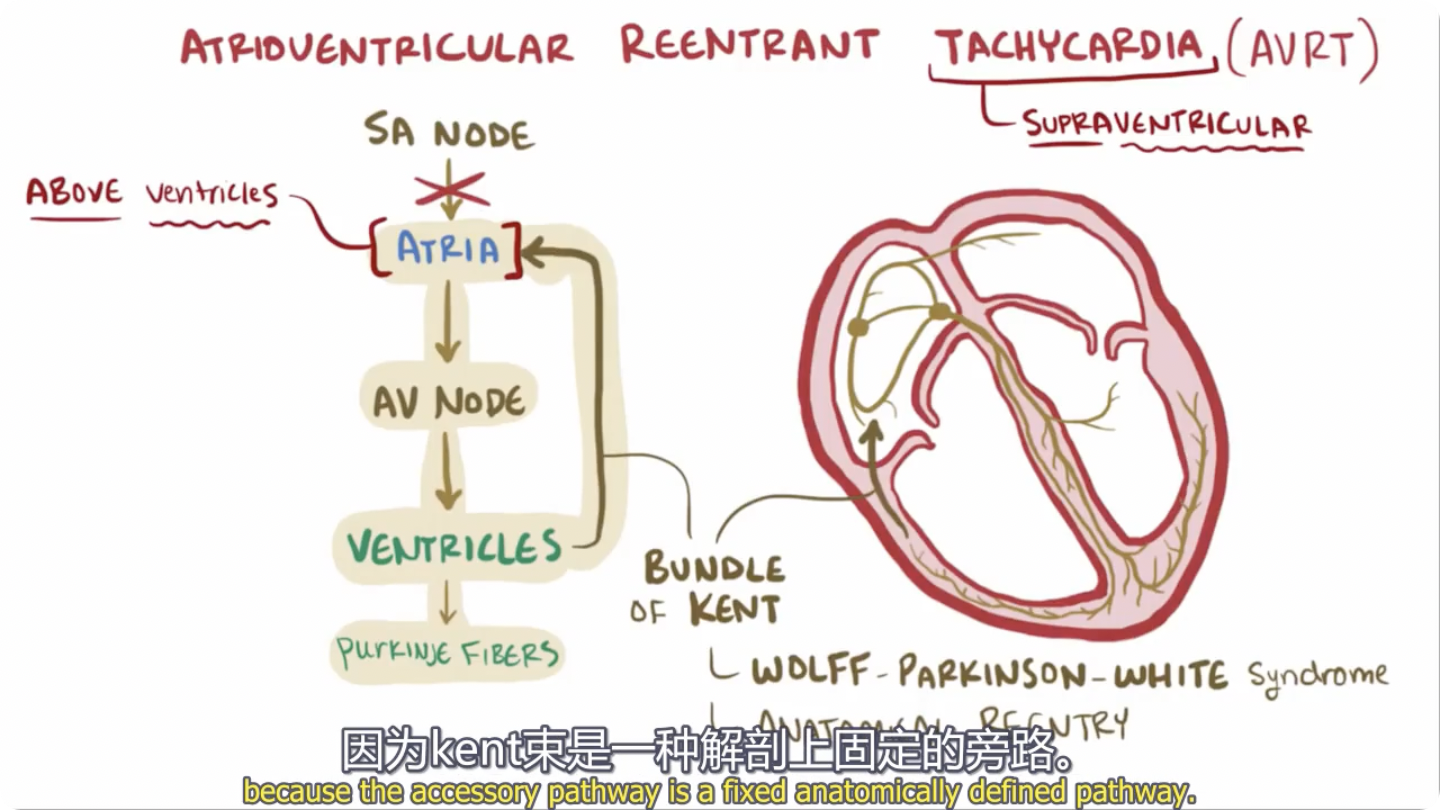 ATRIOVENTRICULAR REENTRANT TACHYCARDIA (AVRT)
SUPRAVENTRICULAR
SA NODE
ABOVE ventricles
[ATRIA]
AV NODE
VENTRICLES
PURKINJE FIBERS
BUNDLE
OF KENT
WOLFF-PARKINSON-WHITE Syndrome
ANATOMICAL REENTRY
因为kent束是一种解剖上固定的旁路。
because the accessory pathway is a fixed anatomically defined pathway.